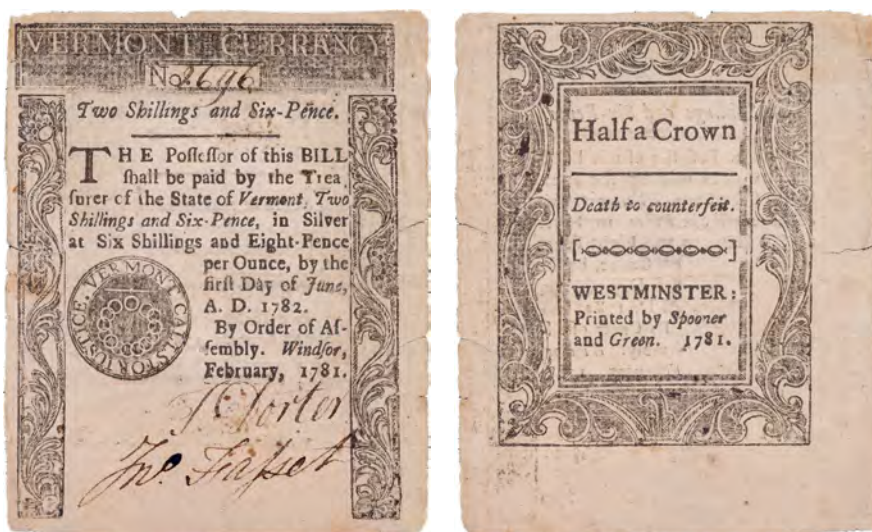 VERMONT CURRENCY.
No. 2696
Two Shillings and Six-Pence.
THE Poſſeſſor of this BILL
ſhall be paid by the Trea-
ſurer of the State of Vermont, Two
Shillings and Six-Pence, in Silver
at Six Shillings and Eight-Pence
per Ounce, by the
firſt Day of June,
A. D. 1782.
By Order of Aſ-
ſembly. Windſor,
February, 1781.
VERMONT CALLS FOR JUSTICE.
T Porter
Jno. Faſset
Half a Crown
Death to counterfeit.
WESTMINSTER:
Printed by Spooner
and Green. 1781.